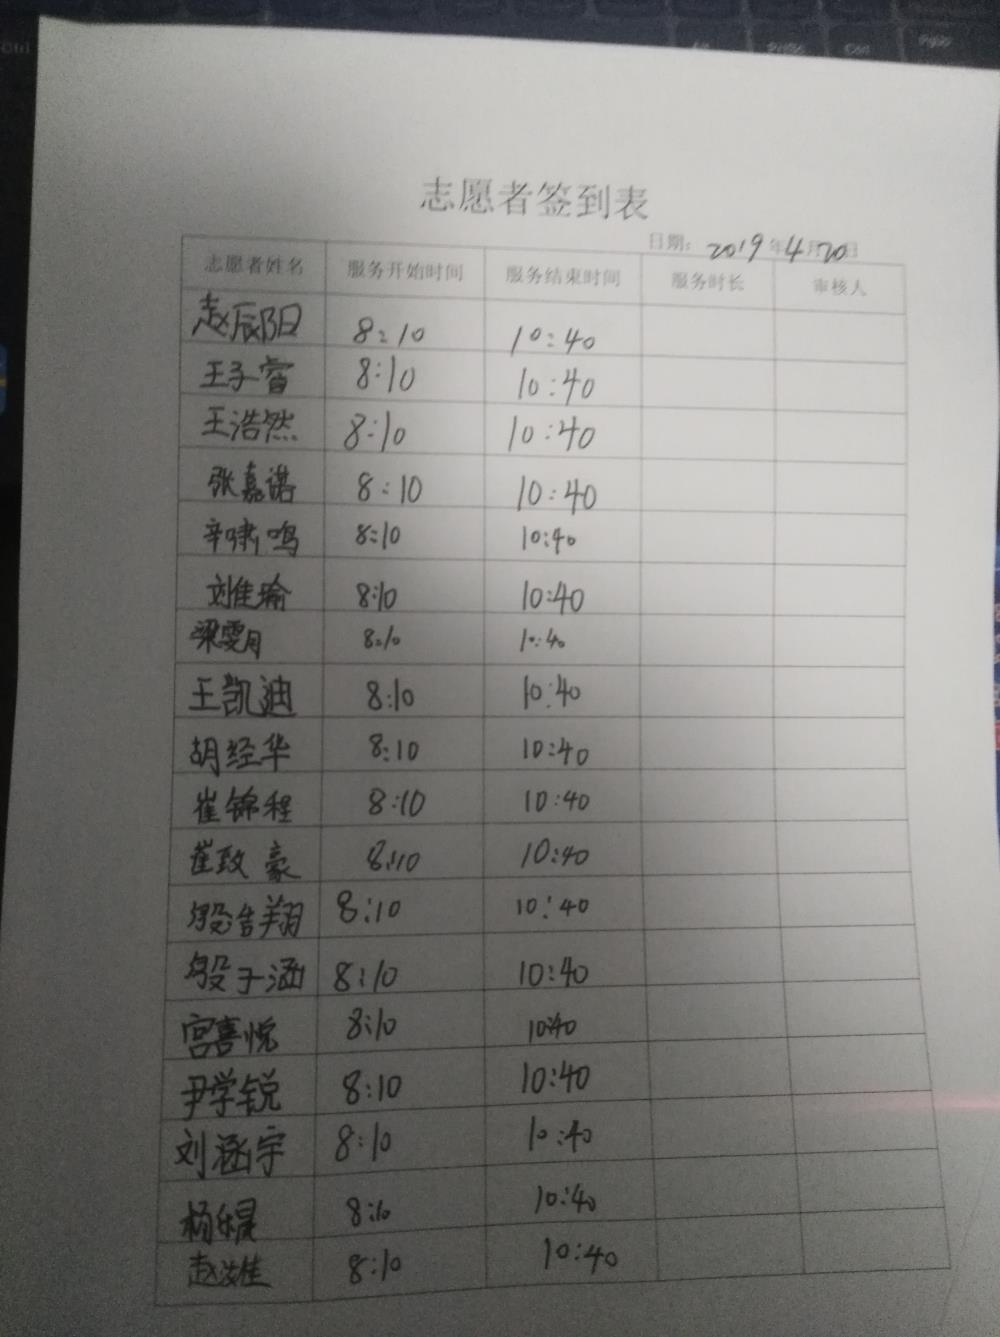 志愿者签到表
日期：2019年4月20日
志愿者姓名 服务开始时间 服务结束时间 服务时长 审核人
赵辰阳 8:10 10:40
王子睿 8:10 10:40
王浩然 8:10 10:40
张嘉诺 8:10 10:40
辛啸鸣 8:10 10:40
刘佳瑜 8:10 10:40
梁雯月 8:10 10:40
王凯迪 8:10 10:40
胡经华 8:10 10:40
崔锦程 8:10 10:40
崔致豪 8:10 10:40
8:10 10:40
殷子涵 8:10 10:40
宫喜悦 8:10 10:40
尹学锐 8:10 10:40
刘涵宇 8:10 10:40
杨乐晨 8:10 10:40
8:10 10:40